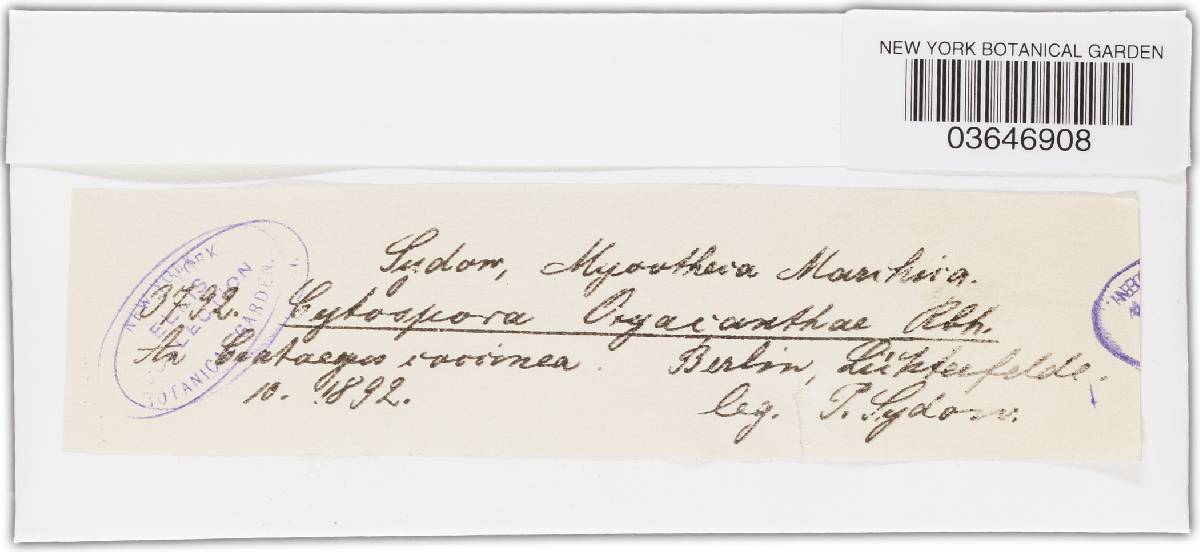 NEW YORK BOTANICAL GARDEN
03646908
Sydow, Mycotheca Marchica.
3792. Cytospora Oxyacanthae Rbh.
An Crataegus coccinea. Berlin, Lichterfelde.
10. 1892. leg. P. Sydow.
NEW YORK
BOTANICAL GARDEN.